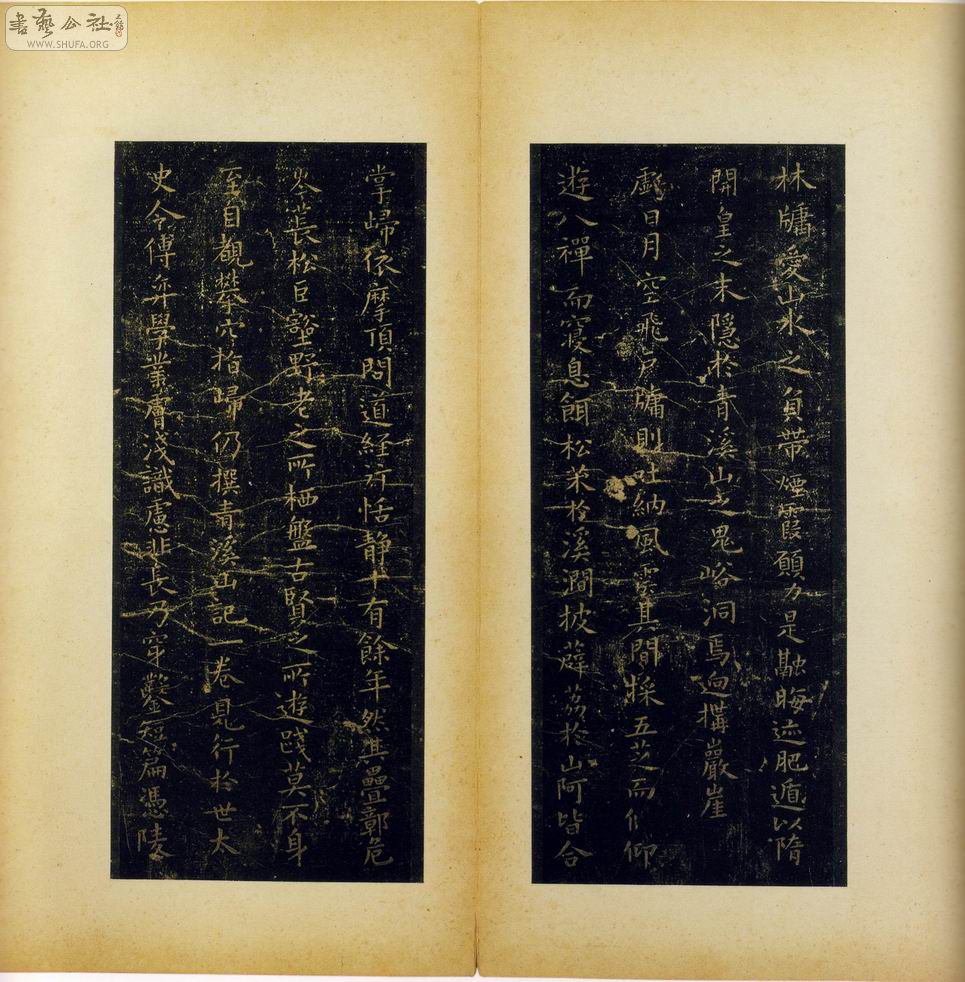 林牖愛山水之負帶煙霞願力是融晦迹肥遁以隋
開皇之末隱於青溪山之鬼峪洞焉迥構巖崖
虧日月空飛戶牖則吐納風雲其間採五芝而偃仰
遊八禪而寢息餌松茱於溪澗披薜荔於山阿皆合
掌歸依摩頂問道經行恬靜十有餘年然其疊鄣危
岑萇松巨壑野老之所栖盤古賢之所遊踐莫不身
至目覩攀穴指歸仍撰青溪山記一卷見行於世太
史令傅弈學業膚淺識慮非長乃穿鑿短篇憑陵
書藝公社
WWW.SHUFA.ORG